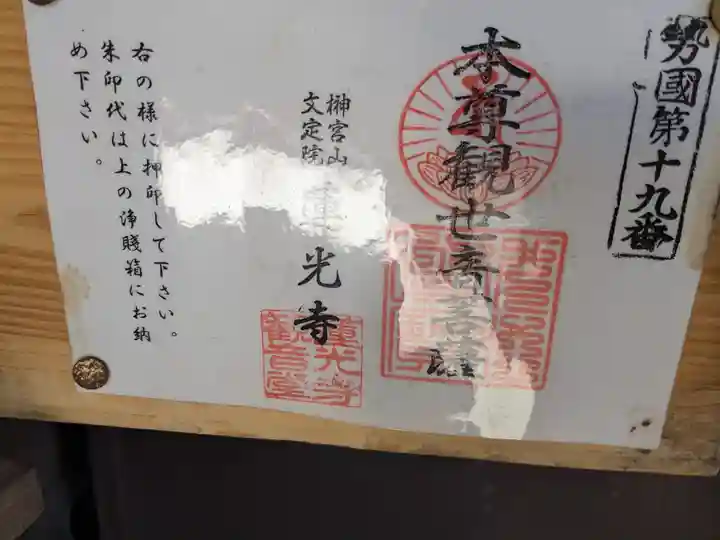 勢國第十九番
本尊観世音菩薩
榊宮山
文定院
蓮光寺
蓮光寺
観音堂
右の様に押印して下さい。
朱印代は上の浄賤箱にお納
め下さい。